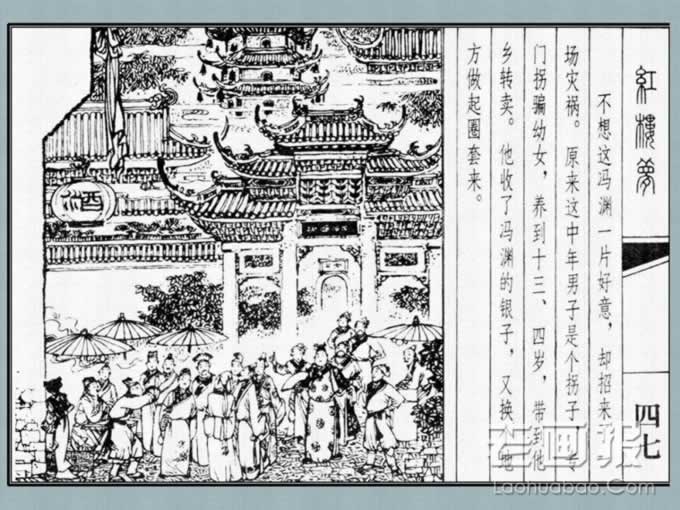 紅楼夢
不想这冯渊一片好意，却招来
场灾祸。原来这中年男子是个拐子，专
门拐骗幼女，养到十三、四岁，带到他
乡转卖。他收了冯渊的银子，又换地
方做起圈套来。
酒
四七
老画报
Laohuabao.Com